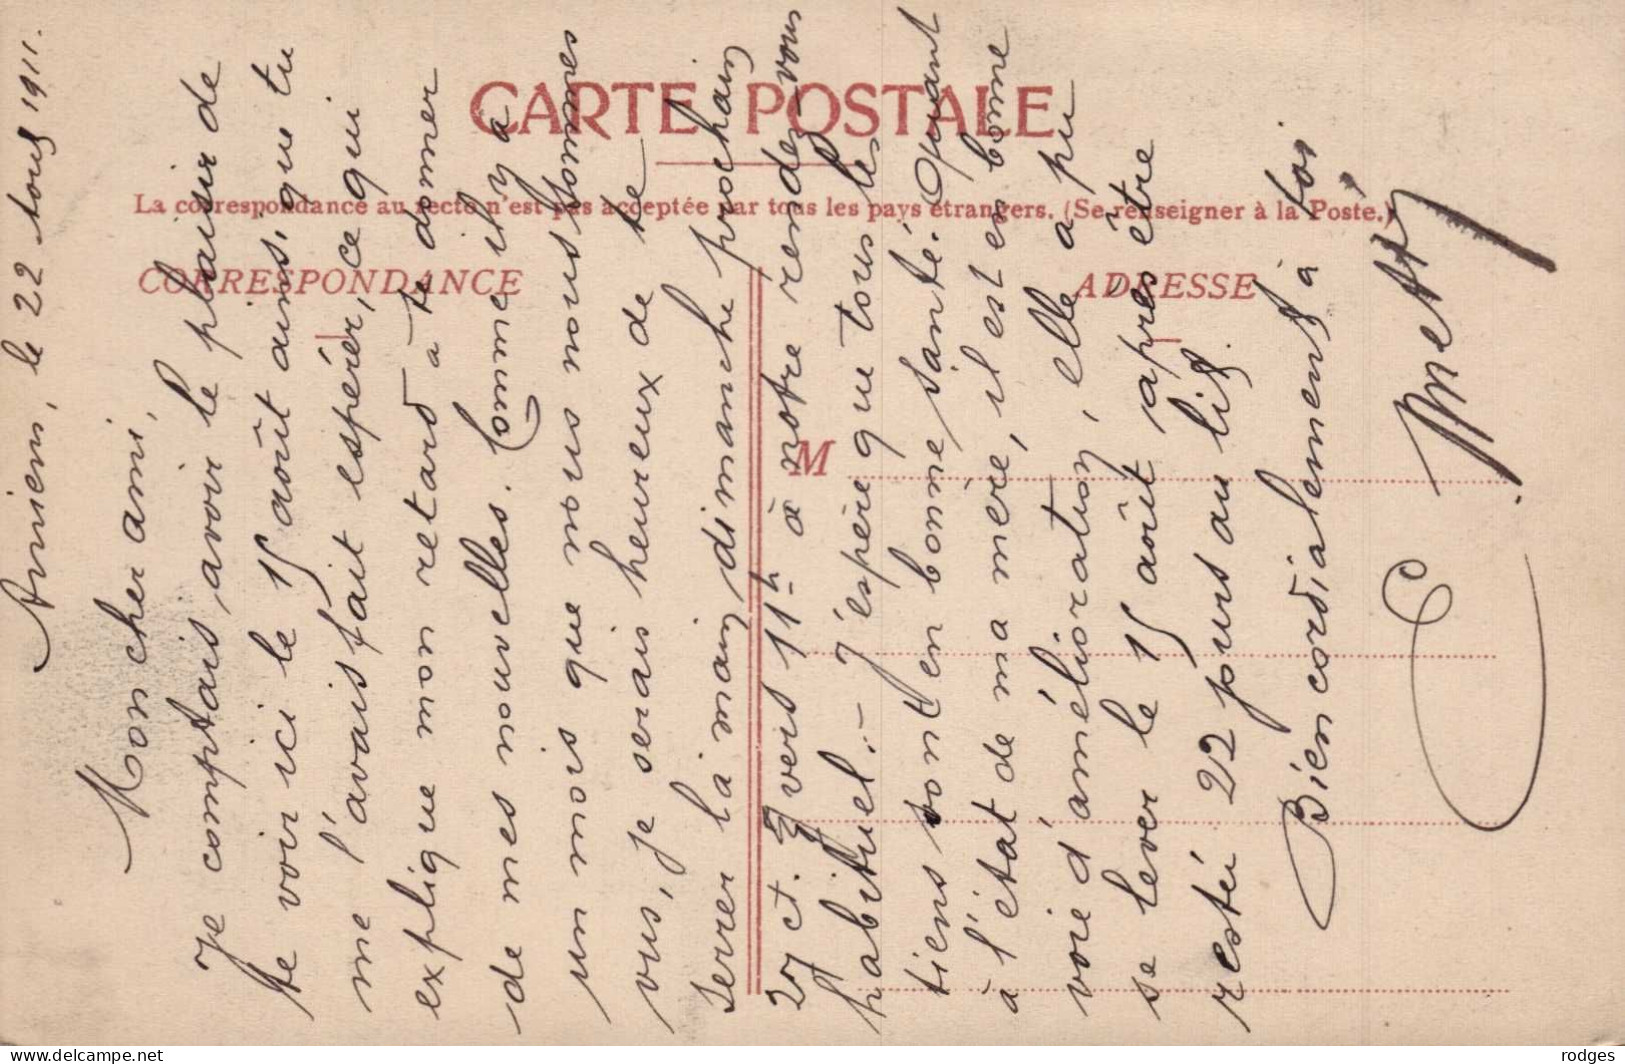 CARTE POSTALE
La correspondance au recto n'est pas acceptée par tous les pays étrangers. (Se renseigner à la Poste.)
CORRESPONDANCE
ADRESSE
M
Amiens, le 22 août 1911.
Mon cher ami,
Je comptais avoir le plaisir de
te voir ici le 15 août ainsi que tu
me l'avais fait espérer, ce qui
explique mon retard à te donner
de mes nouvelles. Comme il y a
un mois que nous nous sommes
vus, je serais heureux de te
serrer la main dimanche prochain
27 ct. vers 11h à notre rendez-vous
habituel. - J'espère que tous les
tiens sont en bonne santé. Quant
à l'état de ma mère, il est en bonne
voie d'amélioration, elle a pu
se lever le 15 août après être
restée 22 jours au lit.
Bien cordialement à toi
rodges